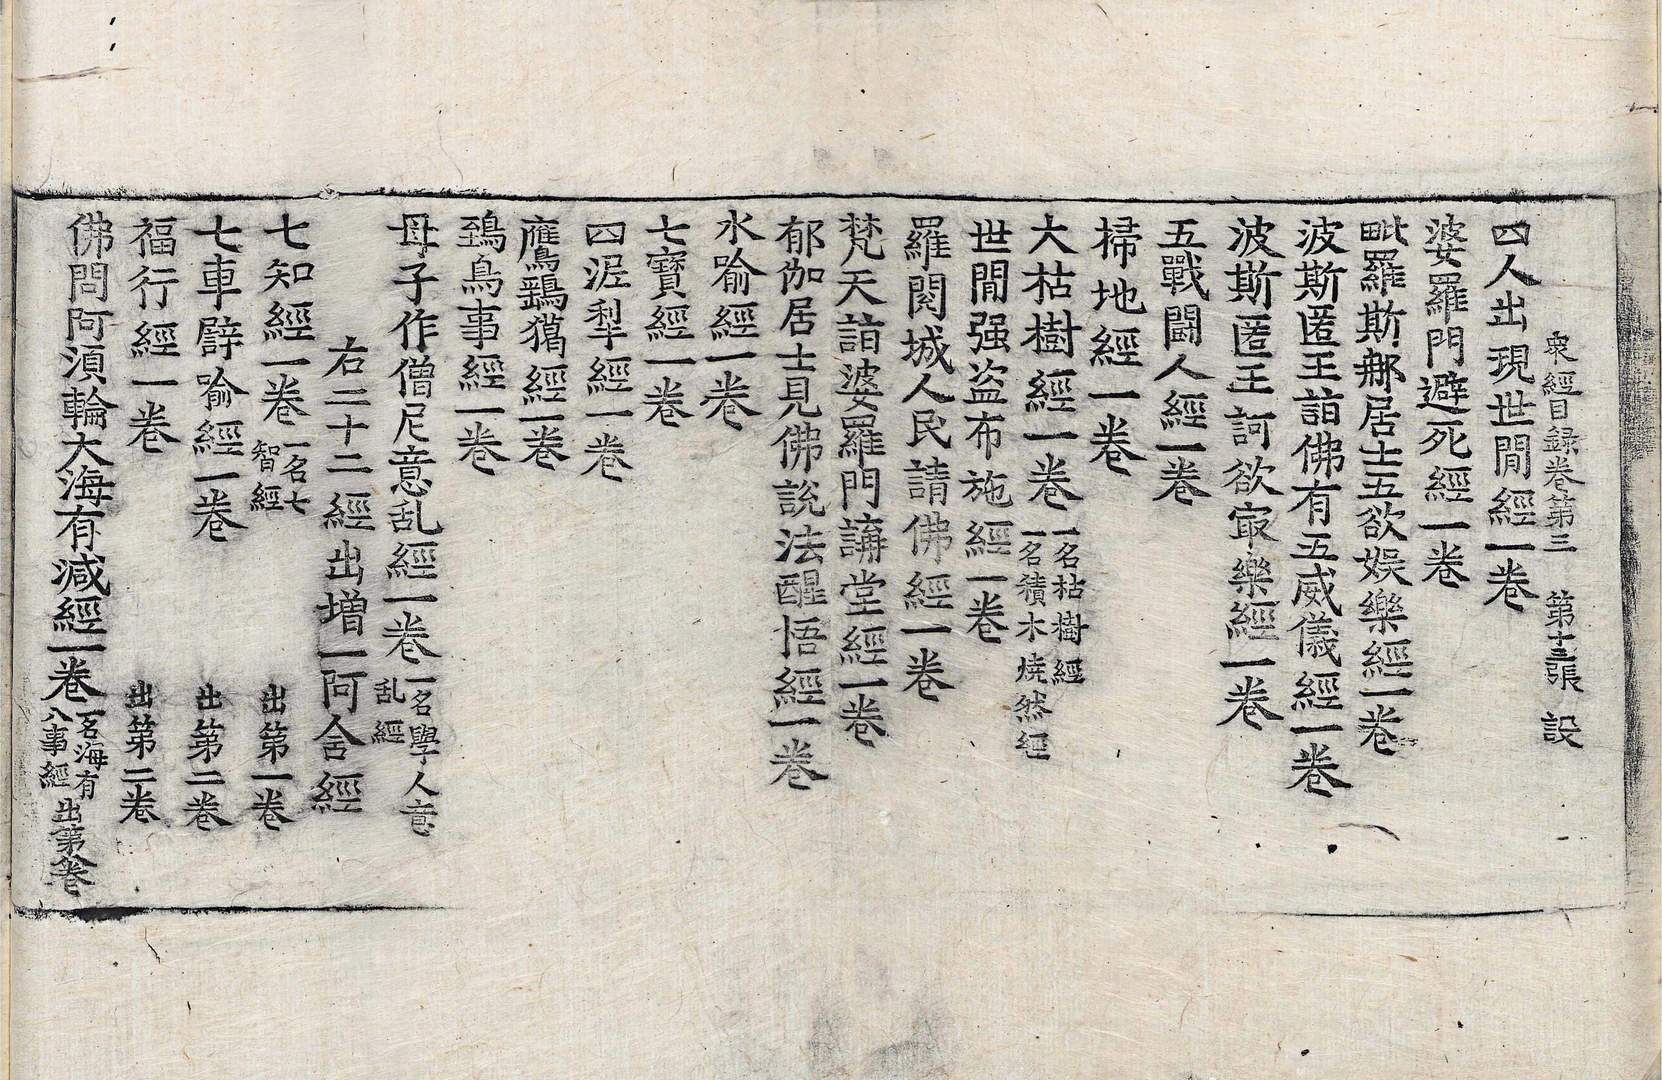 衆經目録卷第三 第十三張 設
四人出現世閒經一卷
婆羅門避死經一卷
毗羅斯那居士五欲娛樂經一卷
波斯匿王詣佛有五威儀經一卷
波斯匿王訶欲㝡樂經一卷
五戰鬪人經一卷
掃地經一卷
大枯樹經一卷 一名枯樹經 一名積木燒然經
世閒强盜布施經一卷
羅閱城人民請佛經一卷
梵天詣婆羅門講堂經一卷
郁伽居士見佛說法醒悟經一卷
水喻經一卷
七寶經一卷
四泥犁經一卷
鷹鷂獦經一卷
鵄鳥事經一卷
母子作僧尼意乱經一卷 一名學人意乱經
右二十二經出增一阿含經
七知經一卷 一名七智經 出第一卷
七車譬喻經一卷 出第二卷
福行經一卷 出第二卷
佛問阿湏輪大海有減經一卷 一名海有八事經 出第卷